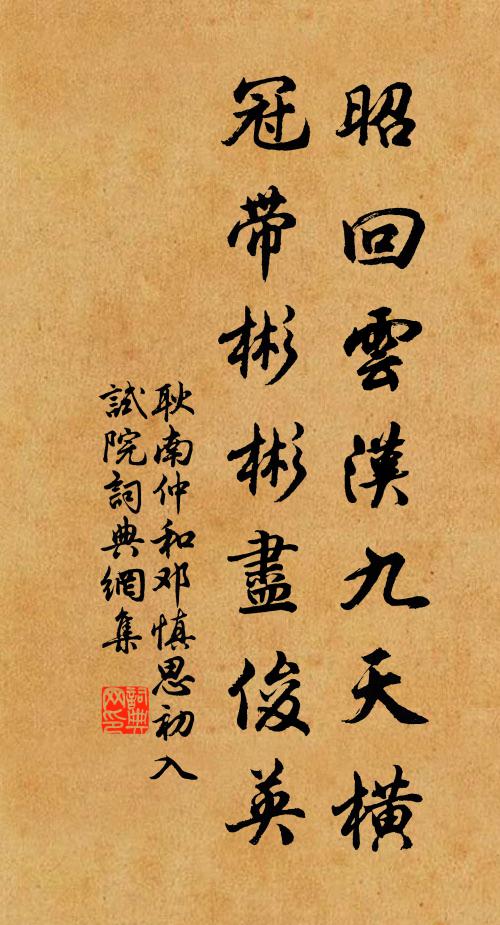 昭回雲漢九天橫
冠带彬彬盡俊英
耿南仲和邓慎思初入
試院詞典網集
詞典网印